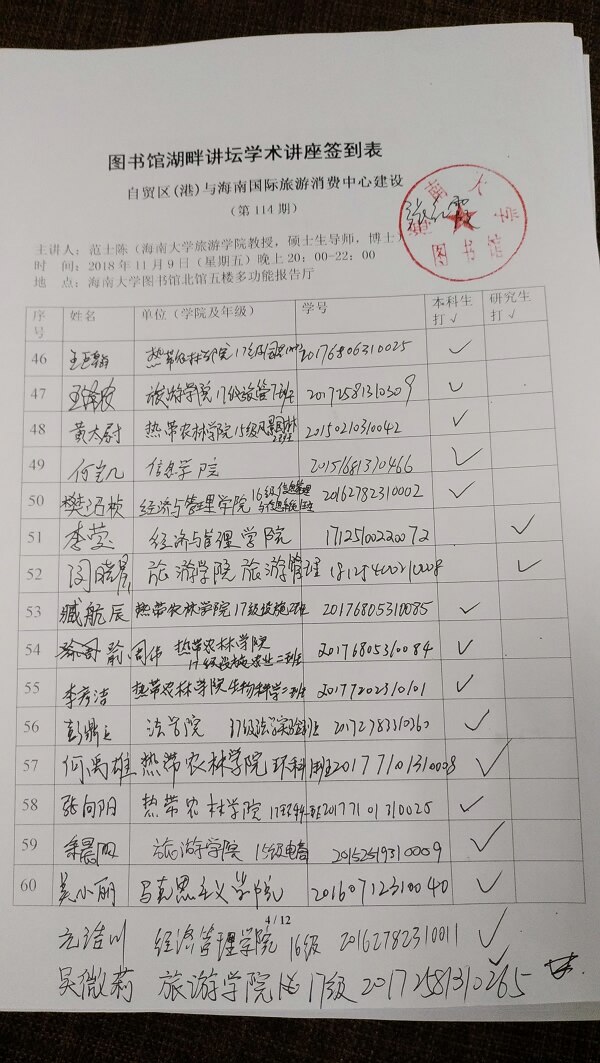 图书馆湖畔讲坛学术讲座签到表
自贸区(港)与海南国际旅游消费中心建设
(第114期)
海南大学
图书馆
主讲人：范士陈（海南大学旅游学院教授，硕士生导师，博士）
时 间：2018年11月9日（星期五）晚上20：00-22：00
地 点：海南大学图书馆北馆五楼多功能报告厅
序号 姓名 单位（学院及年级） 学号 本科生打√ 研究生打√
46 热带农林学院 17级 20176806310025 √
47 旅游学院17级旅管 20172581310309 √
48 黄大尉 热带农林学院15级风景园林 20150210310042 √
49 信息学院 20151681310466 √
50 樊 桢 经济与管理学院 16级信息管理与信息系统 20162782310002 √
51 李莹 经济与管理学院 17125100220072 √
52 闫晓 旅游学院 旅游管理 √
53 臧航辰 热带农林学院17级设施 20176805310085 √
54 周伟 热带农林学院 17级设施农业二班 20176805310084 √
55 李彦洁 热带农林学院生物科学二班 20177202310101 √
56 彭鼎 法学院 17级法学实验班 20172783310360 √
57 何禹雄 热带农林学院 环科 班 20177101310008 √
58 张向阳 热带农林学院 17环科 班 20177101310025 √
59 旅游学院 15级电商 20152519310009 √
60 吴小丽 马克思主义学院 20160712310040 √
4/12
经济管理学院 16级 20162782310011 √
吴微莉 旅游学院 17级 20172581310265 √